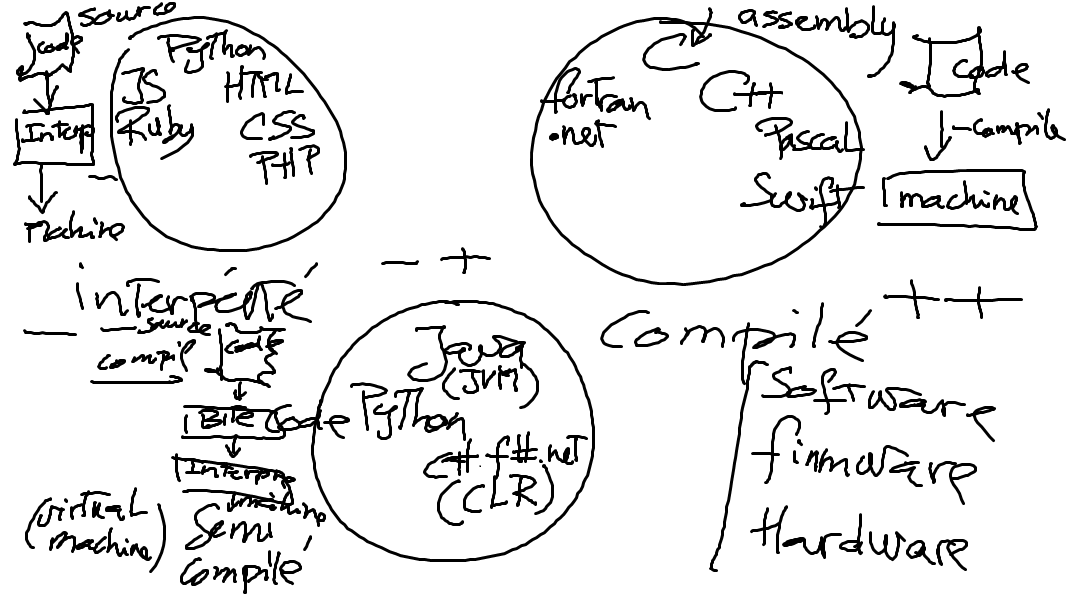 source
code
Interp
machine
Python
JS HTML
Ruby CSS
PHP
interpété
- -
assembly
C
fortran C++
.net Pascal
Swift
code
-compile
machine
Compilé
++
- +
source
compil
code
Bite Code
Interpre
machine
(virtual
machine)
Semi
compilé
Java
(JVM)
Python
C# f# .net
(CLR)
Software
firmware
Hardware